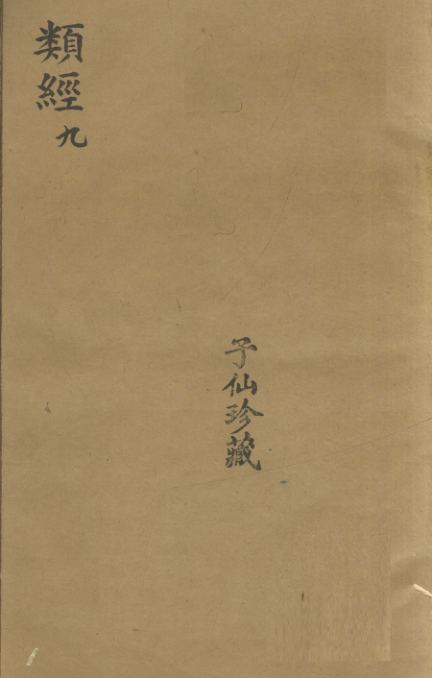 類經九
子仙珍藏